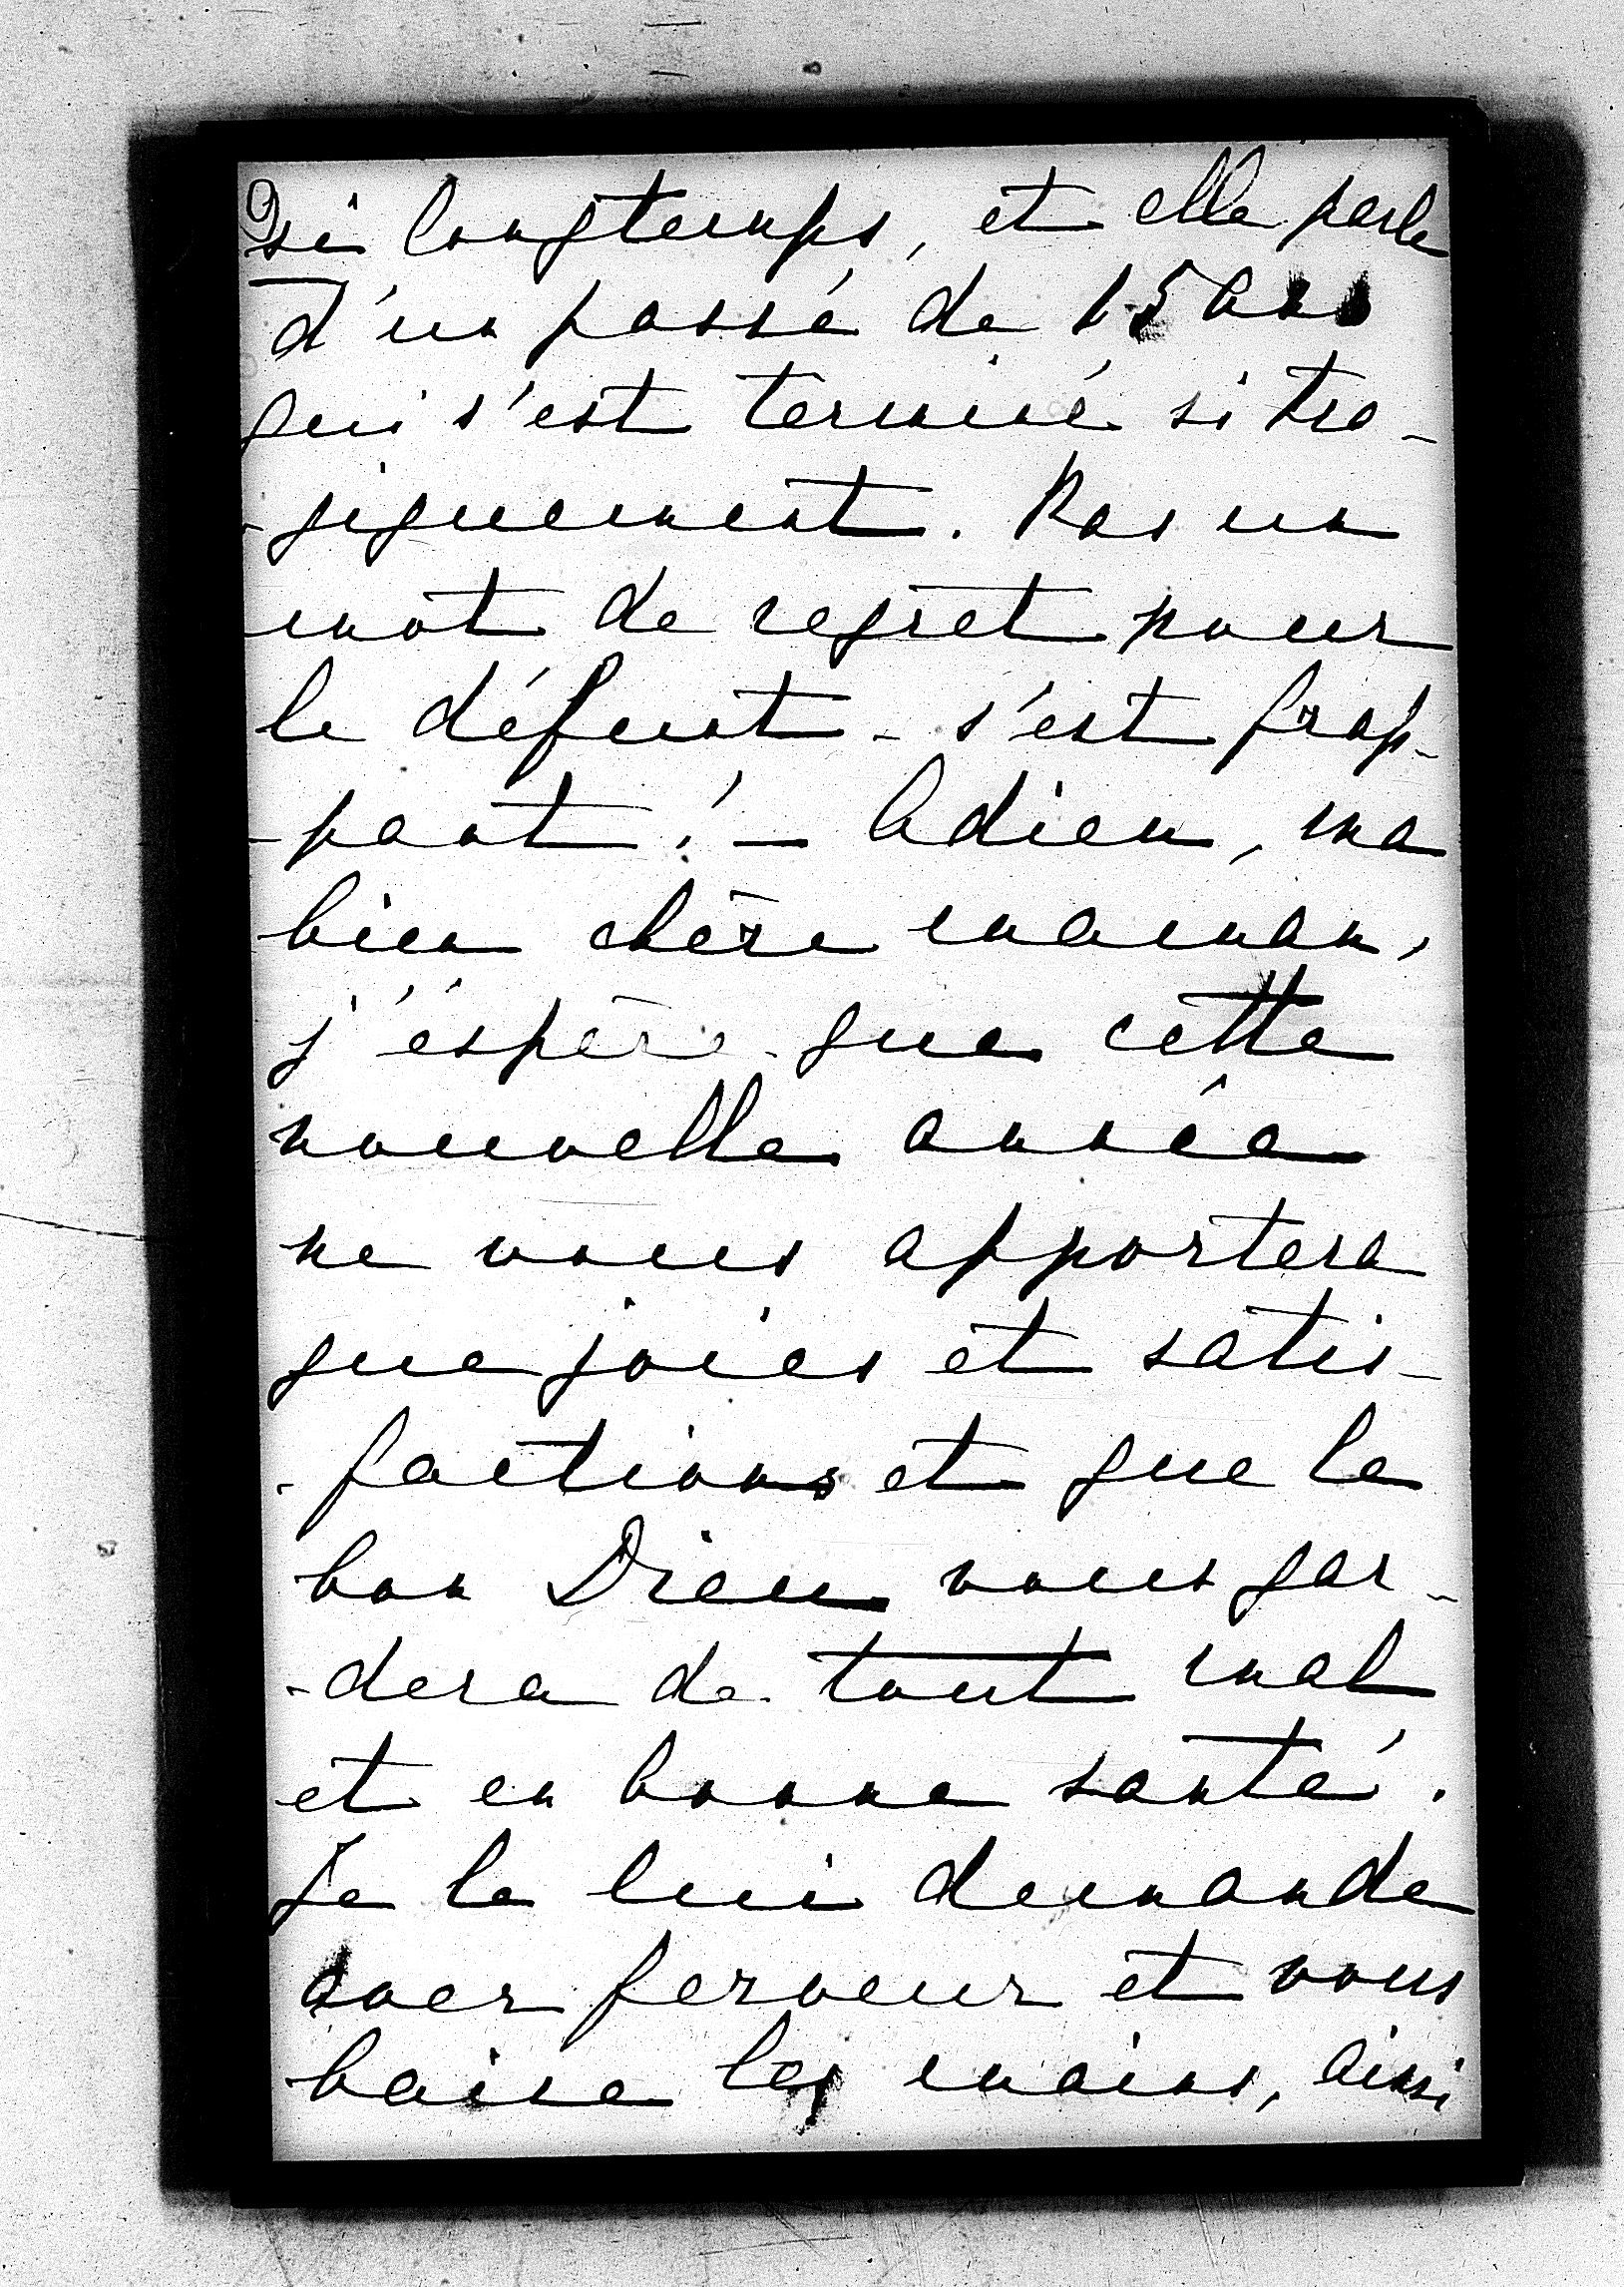 si longtemps, et elle parle
d'un passé de 15 ans
qui s'est terminé si tra-
-giquement. Pas un
mot de regret pour
le défunt - s'est frap-
-pant ! — Adieu, ma
bien chère maman,
j'éspère que cette
nouvelle année
ne vous apportera
que joies et satis-
-factions et que le
bon Dieu vous gar-
-dera de tout mal
et en bonne santé.
Je le lui demande
avec ferveur et vous
baise les mains, ainsi